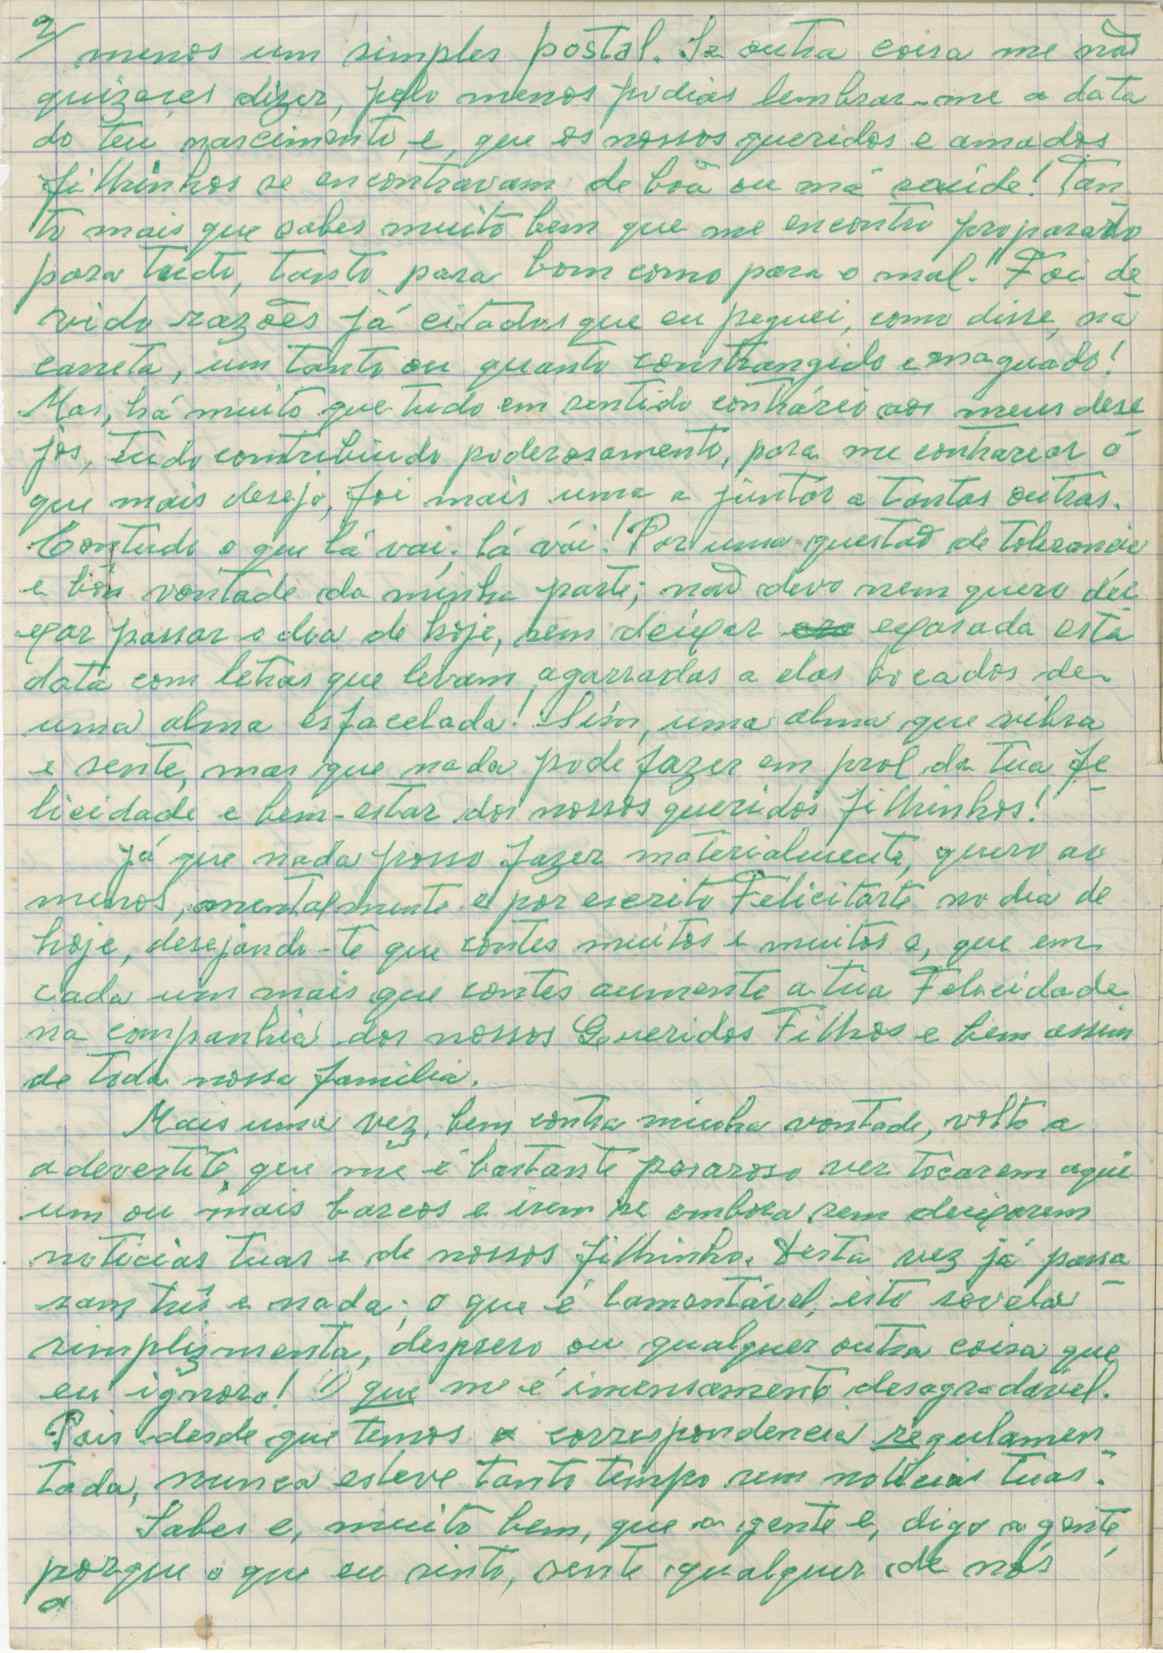 2/
menos um simples postal. Se outra coisa me não
quizeres dizer, pelo menos podias lembrar-me a data
do teu nascimento, e, que os nossos queridos e amados
filhinhos se encontravam de boã ou má saúde! Tan
to mais que sabes muito bem que me encontro preparado
para tudo, tanto para bom como para o mal." Foi de
vido razões já citadas que eu peguei, como disse, na
caneta, um tanto ou quanto constrangido e maguádo!
Mas, há muito que tudo em sentido contrário aos meus dese
jos, tudo contribuindo poderosamente, para me contrariar o
que mais desejo, foi mais uma a juntar a tantas outras.
Contudo o que lá vai, lá vái! Por uma questão de tolerancia
e bôa vontade da minha parte; não devo nem quero dei
xar passar o dia de hoje, sem deixar exarada esta
data com letras que levam agarradas a elas bocados de
uma alma esfacelada! Sim, uma alma que vibra
e sente, mas que nada pode fazer em prol da tua fe
licidade e bem-estar dos nossos queridos filhinhos!
Já que nada posso fazer materialmente, quero ao
menos, mentalmente e por escrito Felicitarte no dia de
hoje, desejando-te que contes muitos e muitos e, que em
cada um mais que contes aumente a tua Felicidade
na companhia dos nossos Queridos Filhos e bem assim
de toda nossa familia.
Mais uma vez, bem contra minha vontade, volto a
adevertite, que me é bastante pesaroso ver tocarem aqui
um ou mais barcos e irem se embora sem deixarem
noticias tuas e de nossos filhinho. Desta vez já passa
ram três e nada; o que é lamentável, isto revela
simplismente, despreso ou qualquer outra coisa que
eu ignoro! O que me é imensamente desagradável.
Pois desde que temos a correspondencia regulamen
tada, nunca esteve tanto tempo sem noticias tuas.
Sabes e, muito bem, que a gente e, digo a gente,
porque o que eu sinto, sente qualquer de nós